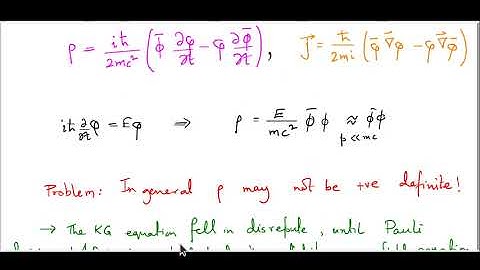 ρ = iħ/2mc² (φ̄ ∂φ/∂t − φ ∂φ̄/∂t), J⃗ = ħ/2mi (φ̄ ∇⃗φ − φ ∇⃗φ̄)
iħ ∂/∂t φ = Eφ ⇒ ρ = E/mc² φ̄ φ ≈ φ̄φ
p << mc
Problem: In general ρ may not be +ve definite!
→ The KG equation fell in disrepute, until Pauli